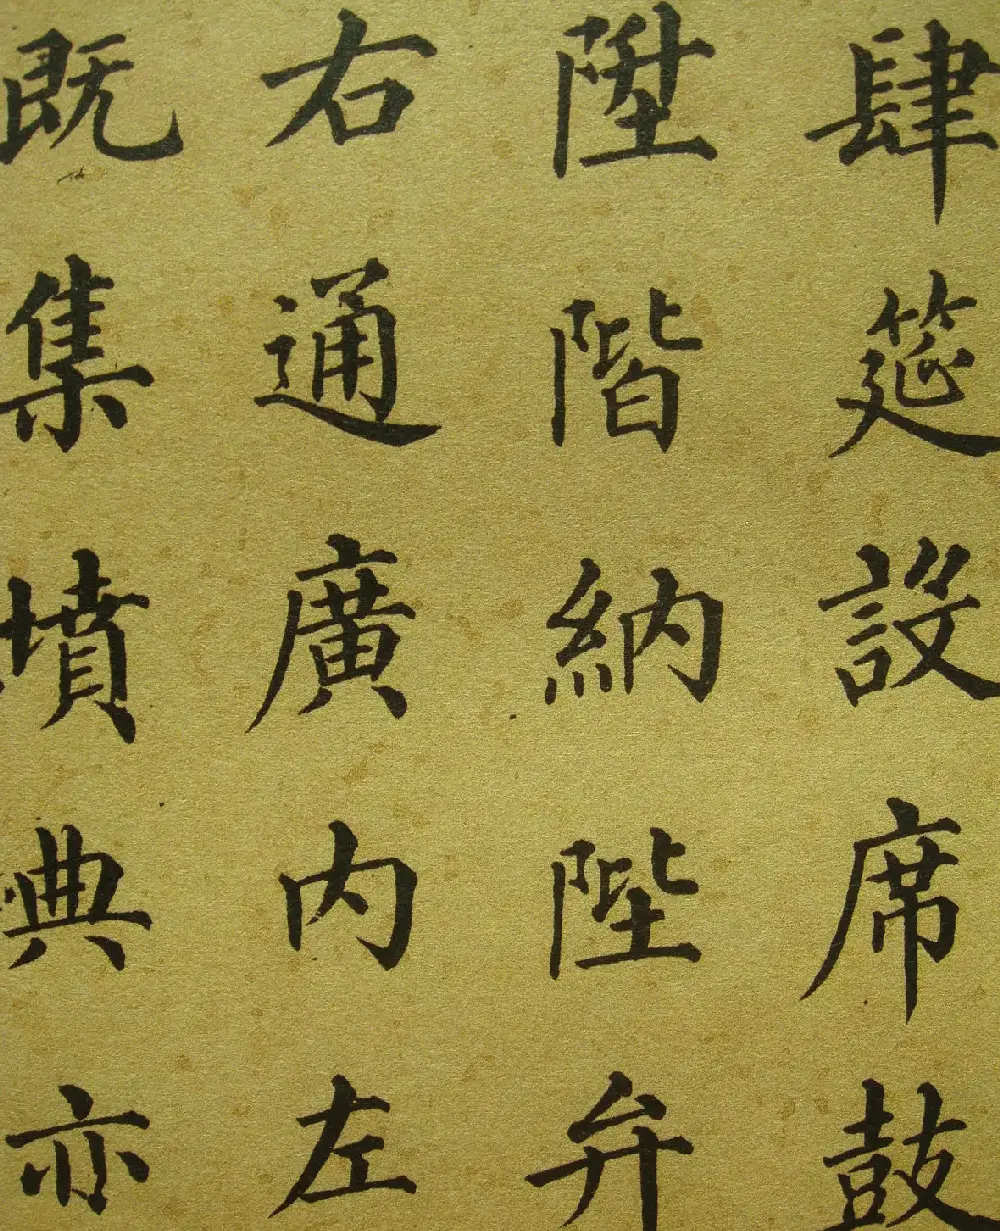 肆筵設席鼓
陞階納陛弁
右通廣內左
既集墳典亦